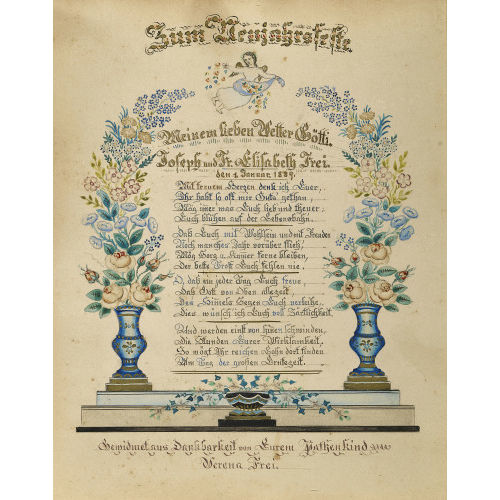 Zum Neujahrsfeste
Meinem lieben Vetter Götti
Joseph und Fr. Elisabeth Frei.
den 1. Januar 1889.
Mit treuem Herzen denk ich Euer,
Ihr habt so oft mir Gutes gethan,
Mög immer was Euch lieb und theuer
Euch blühen auf der Lebensbahn.
Daß Euch mit Wohlsein und mit Freuden
Noch manches Jahr vorüber flieh,
Mög Sorg u. Kumer ferne bleiben,
Der beste Trost Euch fehlen nie.
O, daß ein jeder Tag Euch freue
Daß Gott von Oben
Des Himels Segen Euch verleihe,
Dies wünsch ich Euch voll Zärtlichkeit.
Und werden einst von hinen schwinden,
Die Stunden Eurer Wirksamkeit,
So mögt Ihr reichen Lohn dort finden
Am Tag der großen Erntezeit.
Gewidmet aus Dankbarkeit von Eurem Pathenkind
Verena Frei.